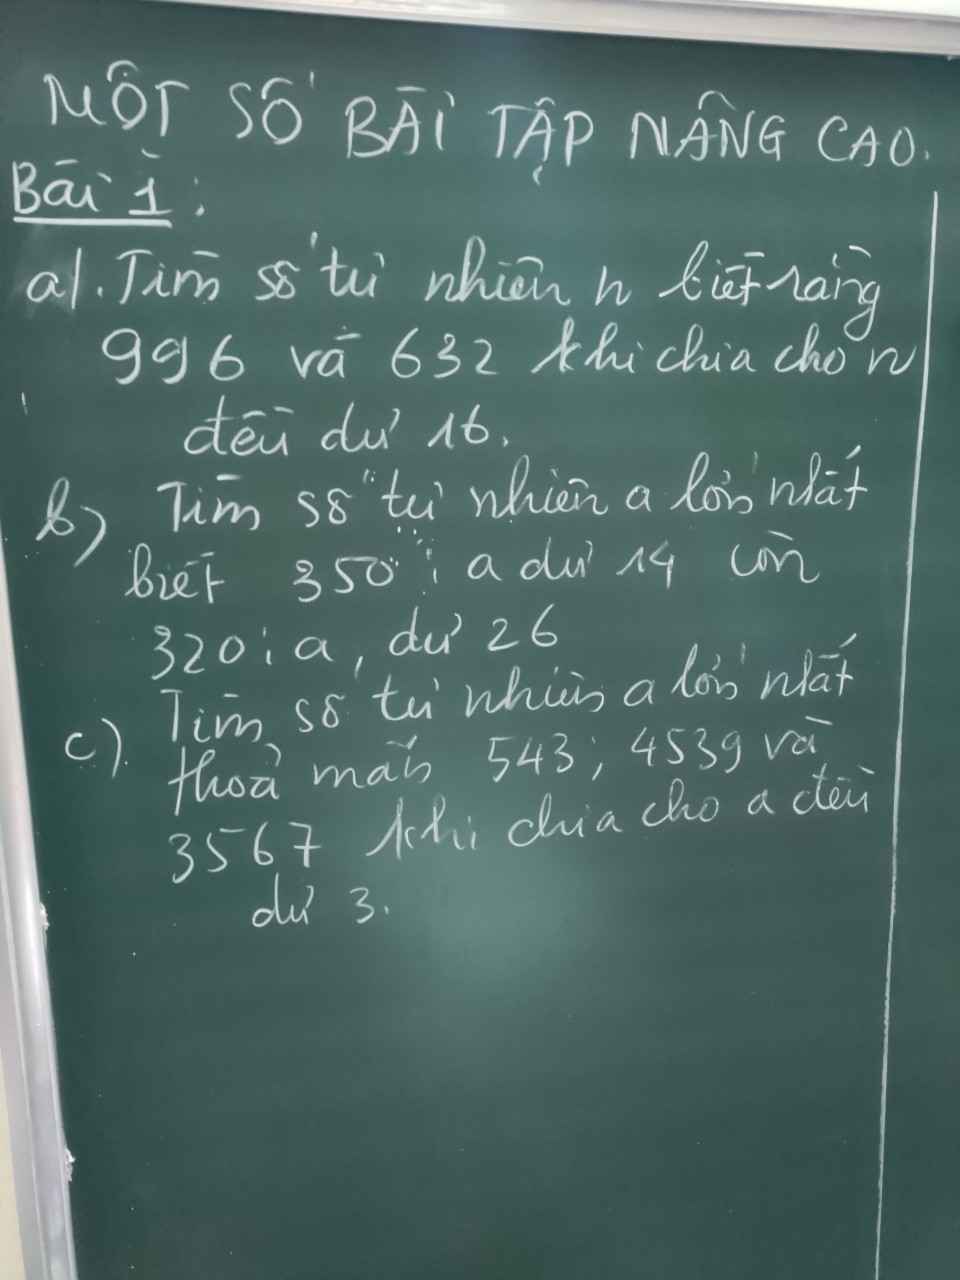 MỘT SỐ BÀI TẬP NÂNG CAO.
Bài 1:
a). Tìm số tự nhiên n biết rằng
996 và 632 khi chia cho n
đều dư 16.
b) Tìm số tự nhiên a lớn nhất
biết 350 : a dư 14 còn
320 : a, dư 26
c). Tìm số tự nhiên a lớn nhất
thoả mãn 543; 4539 và
3567 khi chia cho a đều
dư 3.